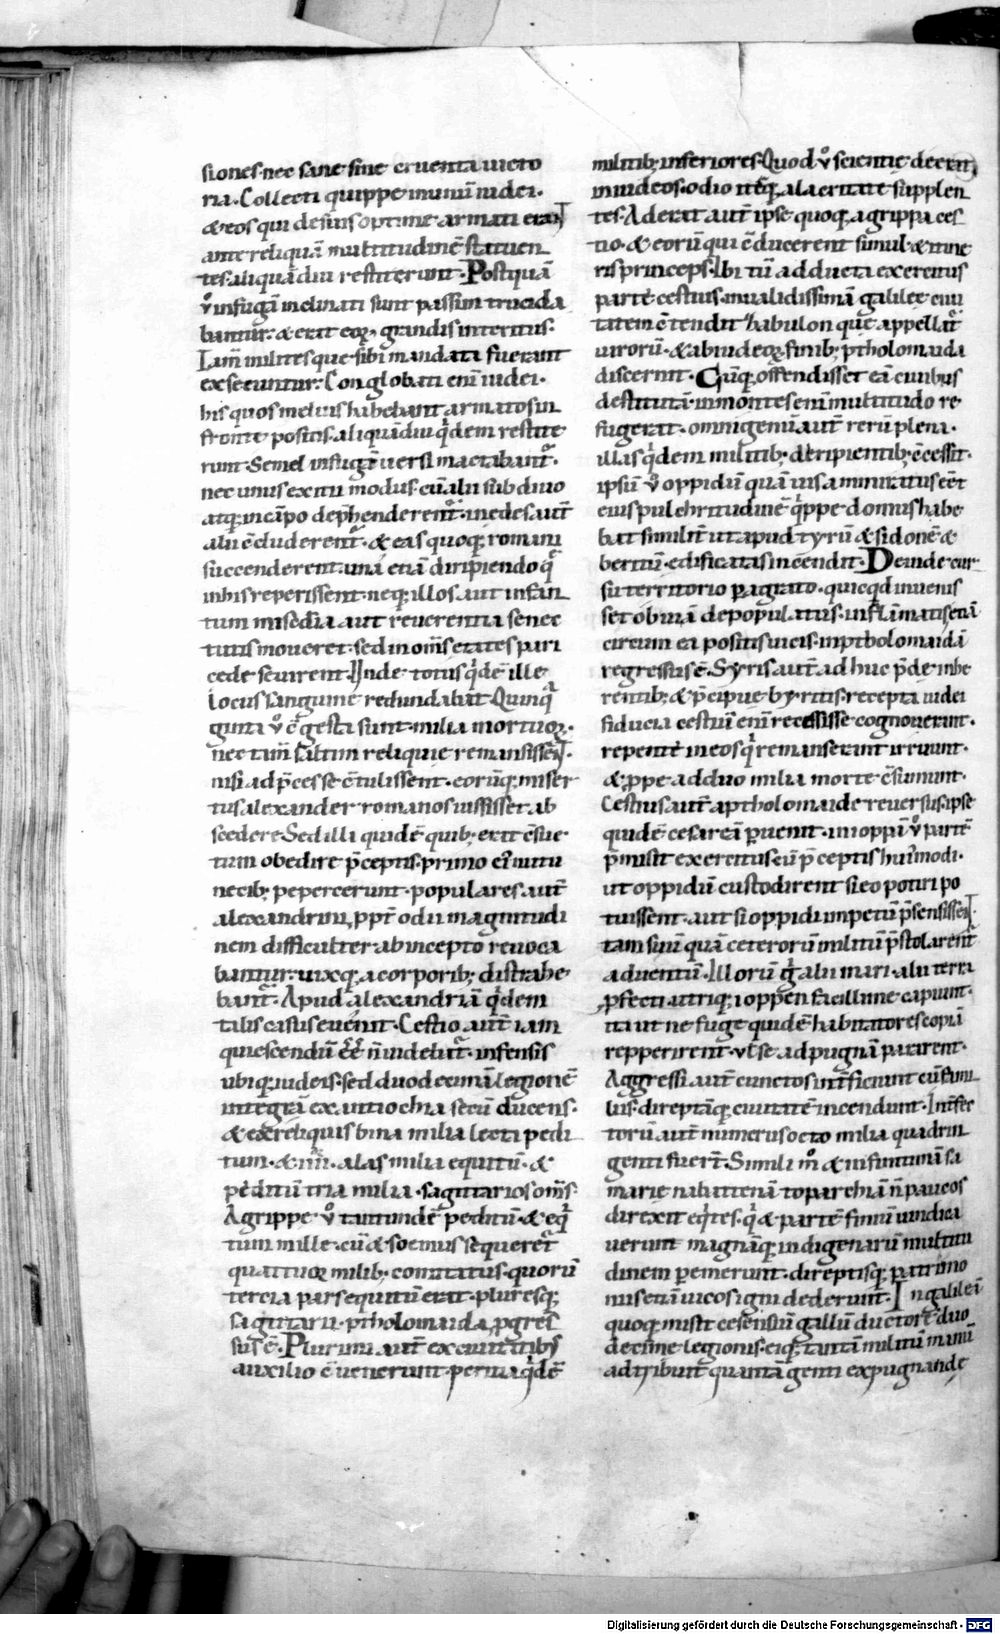 siones·nec sane sine cruenta uicto
ria·Collecti quippe in unū iudei·
&eos qui de suis optime armati erant
ante reliquā multitudinē statuen
tes·aliquādiu restiterunt·Postquā
v̊ infugā inclinati sunt passim trucida
bantur·& erat eoꝝ grandis interitus·
Iam milites que sibi mandata fuerant
exsecuntur·Conglobati eni iudei·
his quos melius habebant armatos in
fronte positis·aliquādiu qͥdem restite
runt·Semel in fugā uersi mactabant᷑·
nec unus exitii modus·cū alii sub diuo
atq; in cāpo dep̄henderent᷑·in edes aut̄
alii c̄cluderent᷑·& eas quoq; romani
succenderent·una etiā diripiendo q̄
in his reperissent·neq; illos aut infan
tum mis̄dia aut reuerentia senec
tutis moueret·sed in om̄s etates pari
cede seuirent·Inde totus qͥdē ille
locus sanguine redundabat·Quinq̄
ginta v̊ c̄gesta sunt milia mortuoꝝ·
nec tam̄ saltim reliquie remansissent·
nisi ad p̄ces se c̄tulissent·eorūq; miser
tus alexander romanos iussisset ab
scedere·Sed illi quidē quib; erat c̄sue
tum obedire p̄ceptis·primo ei nutu
necib; pepercerunt·populares aut̄
alexandrini ppt̄ odii magnitudi
nem difficulter ab incepto reuoca
bantur·uixq; a corporib; distrahe
bant᷑·Apud alexandriā qͥdem
talis casus euenit·Cestio aut̄ iam
quiescendū ēē n̄ uidebat᷑·infensis
ubiq; iudeis·sed duodecimā legionē
integrā ex antiochia secū ducens·
& ex reliquis bina milia lecti pedi
tum·& iiii·alas milia equitū·&
peditū tria milia·sagittarios om̄s·
Agrippe v̊ tantundē peditū·& eqͥ
tum mille·cū & soemus sequeret᷑
quattuoꝛ milib; comitatus·quorū
tercia pars equitū erat·pluresq;
sagittarii·ptholomaida ꝓgres
sus ē·Plurimi aut̄ ex ciuitatibus
auxilio c̄uenerunt·peritia qͥdē
militib; inferiores·Quod v̊ scientie deerat
in iudeos·odio itēq; alacritate supplen
tes·Aderat aut̄ ipse quoq; agrippa ces
tio·& eorū qui c̄ducerent simul·& itine
ris princeps·Ibi tū adducta exercitus
parte cestius·in ualidissimā galilee ciui
tatem c̄tendit zabulon que appellat᷑
uirorū·& ab iudeoꝝ finib; ptholomaida
discernit·Cūq; offendisset eā ciuibus
destitutā·in montes enī multitudo re
fugerat·omni genū aut̄ rerū plena·
illas qͥdem militib; diripientib; c̄cessit·
ipsū v̊ oppidū quāuis ammiratus eēt
eius pulchritudinē qͥppe domus habe
bat similit̄ ut apud tyrū & sidonē·&
beritū·edificatas incendit·Deinde cur
su territorio ꝑagrato·quicqͥd inuenis
set obuiā depopulatus·inflāmatis etiā
circum ea positis uicis·in ptholomaidā
regressus ē·Syris aut̄ adhuc p̄de inhe
rentib; & p̄cipue byritis·recepta iudei
fiducia cestiū enī recessisse cognouerunt·
repente in eos qͥ remanserant irruunt·
& ꝓpe ad duo milia morte c̄sumunt·
Cestius aut̄ a ptholomaide reuersus·ipse
quidē cesareā ꝑuenit·in ioppā v̊ partē
p̄misit exercitus cū p̄ceptis huiꝰmodi·
ut oppidū custodirent si eo potiri po
tuissent·aut si oppidi impetū p̄sensissent·
tam suū quā ceterorū militū p̄stolarent᷑
aduentū·Illorū gͥ alii mari·alii terra
ꝓfecti utriq; ioppen facillime capiunt·
ita ut ne fuge quidē habitatores copiā
repperirent·ut se ad pugnā pararent·
Aggressi aut̄ cunctos int̄ficiunt cū fami
liis·direptāq; ciuitatē incendunt·Int̄fec
torū aut̄ numerus octo milia quadrin
genti fuert̄·Simili m̊ & in finitimā sa
marie nabattenā toparchiā n̄ paucos
direxit eqͥtes·qͥ & partē finiū uindica
uerunt magnāq; indigenarū multitu
dinem ꝑemerunt·direptisq; patrimo
niis etiā uicos igni dederunt·In galileā
quoq; misit cesenniū gallū ductorē duo
decime legionis·eiq; tantā militū manū
adtribuit quantā genti expugnande
Digitalisierung gefördert durch die Deutsche Forschungsgemeinschaft - DFG